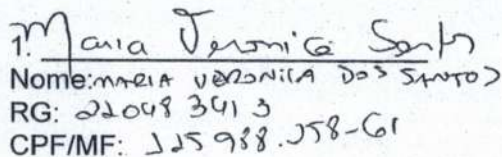 1. Maria Veronica Santos
Nome: MARIA VERONICA DOS SANTOS
RG: 22048 341 3
CPF/MF: 125988.258-61